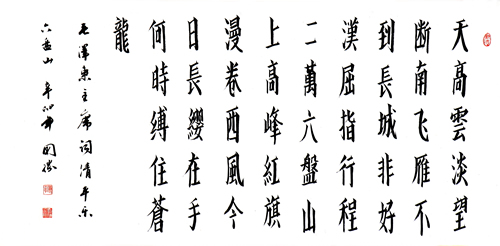 天高雲淡望
断南飞雁不
到長城非好
漢屈指行程
二萬六盤山
上高峰紅旗
漫卷西風今
日長纓在手
何時縛住蒼
龍
毛澤東主席词清平乐
六盘山 辛卯年 國